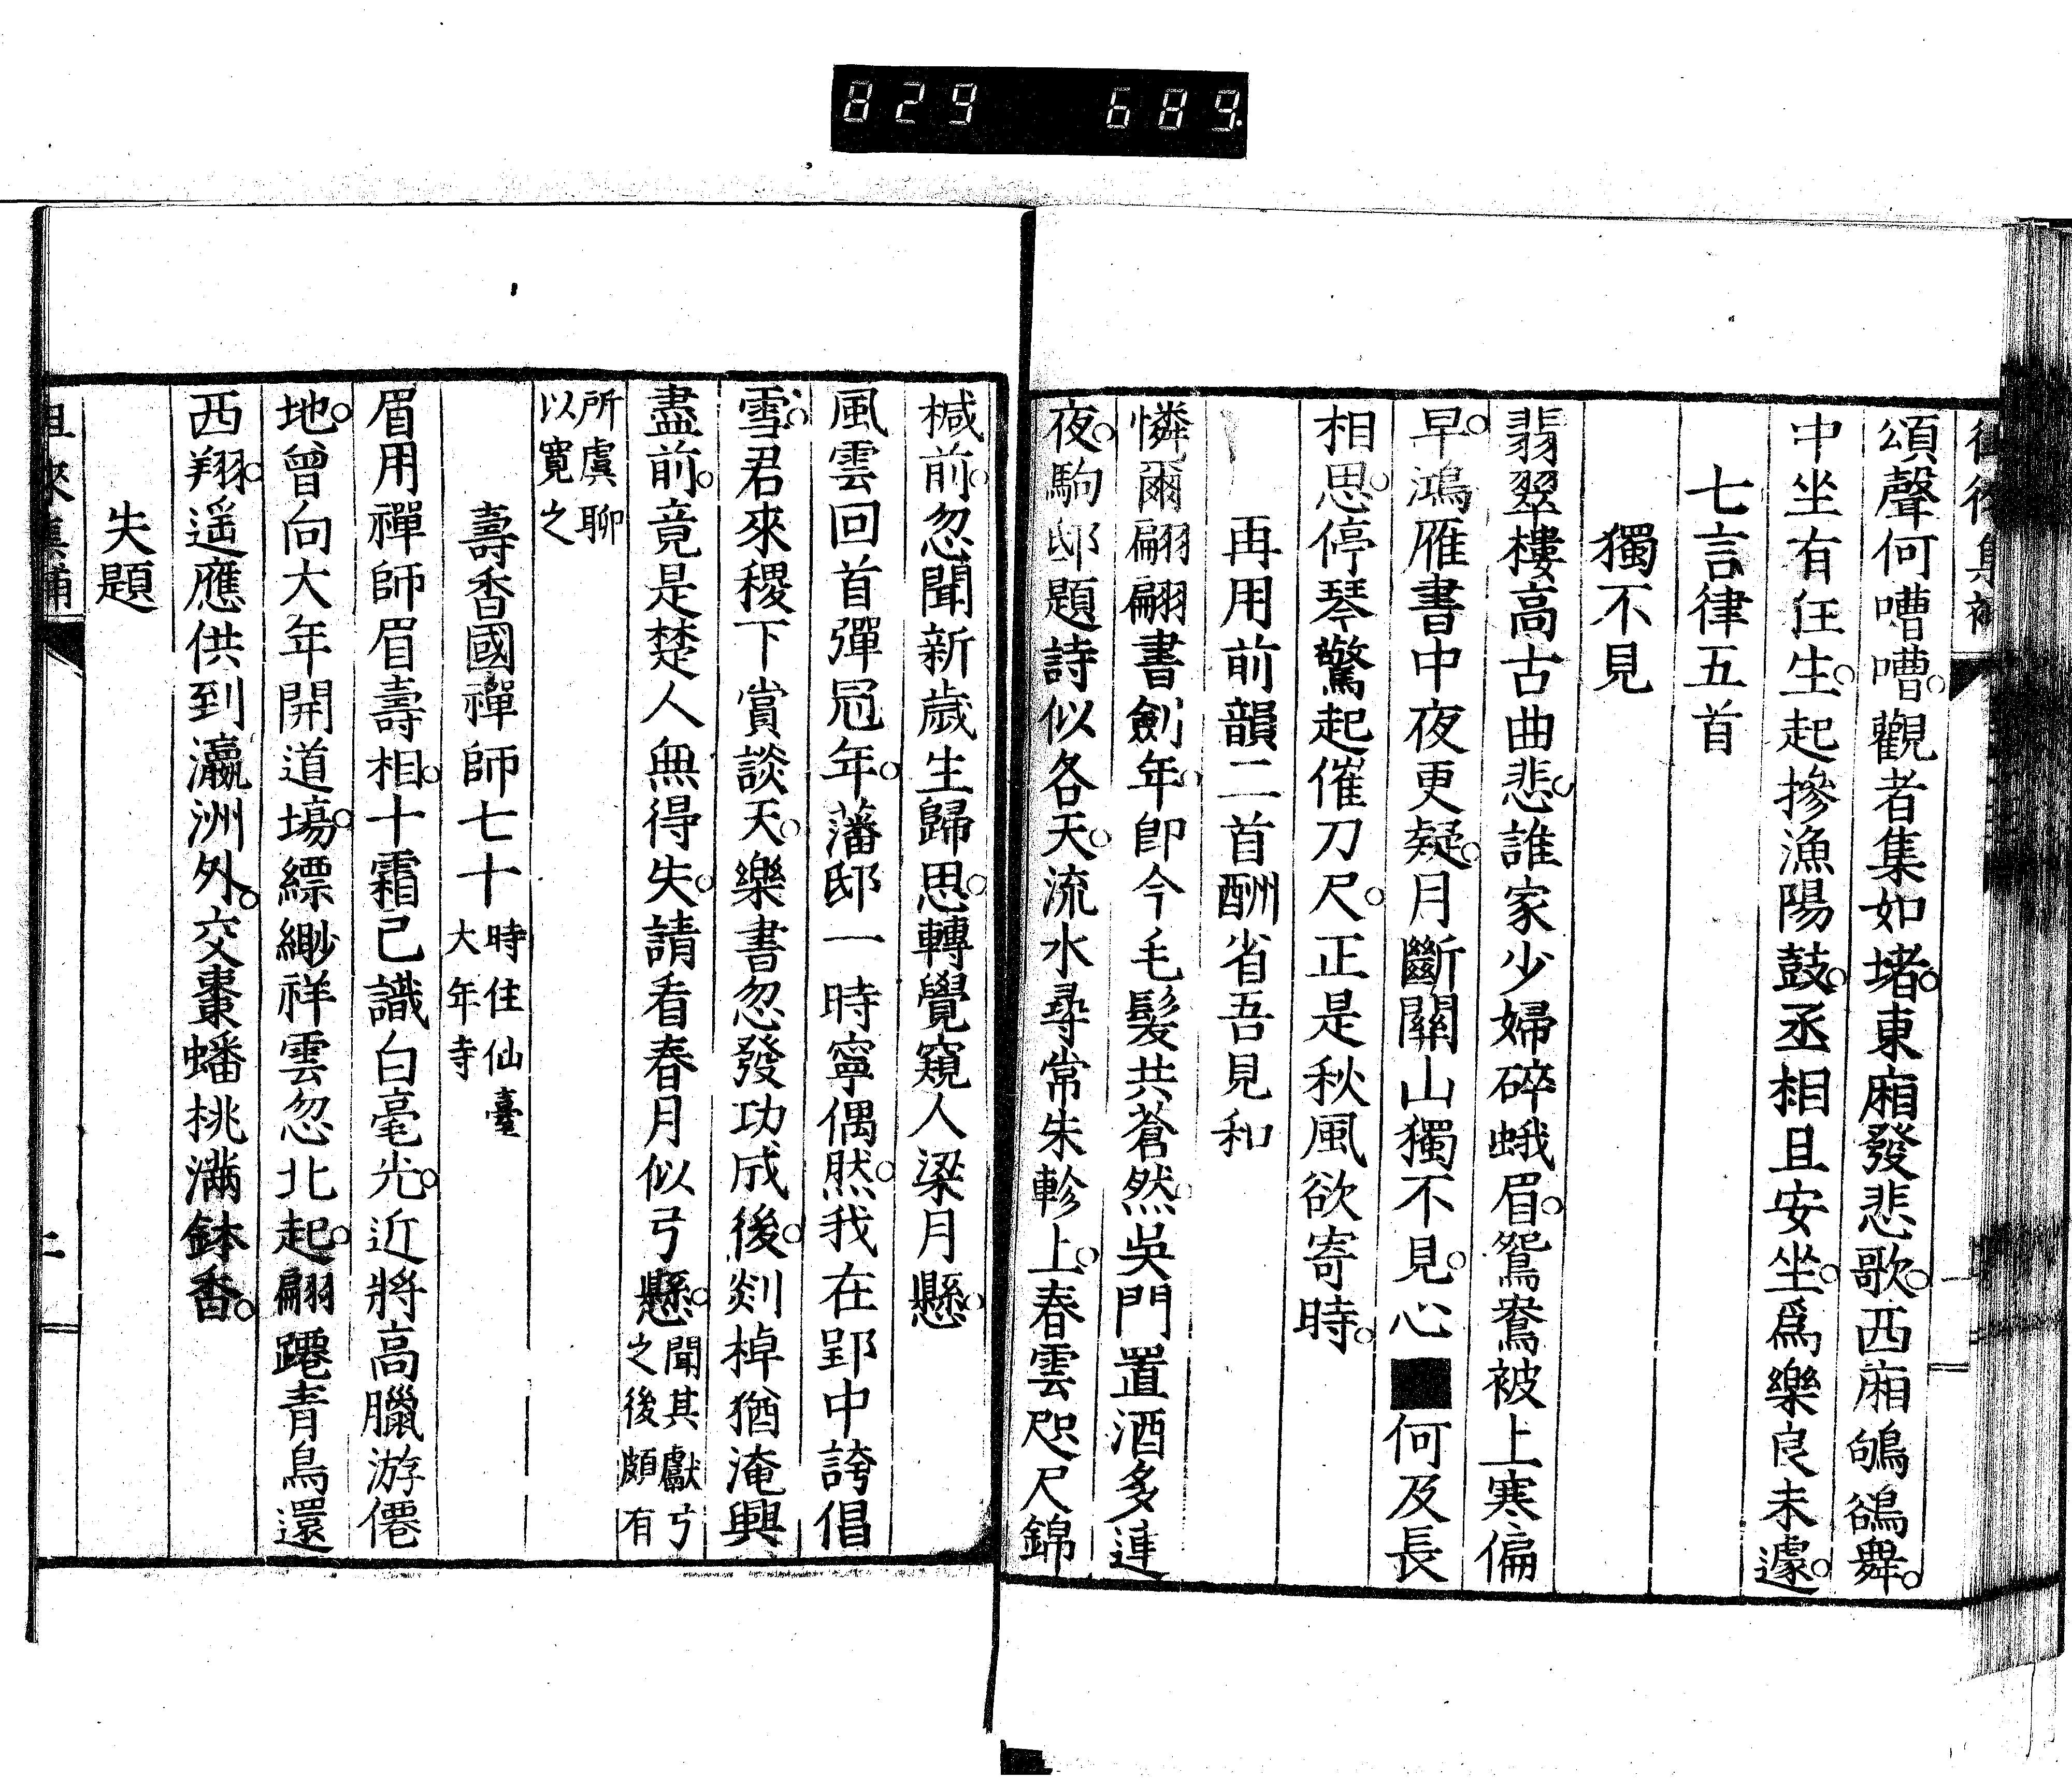 829 689
頌聲何嘈嘈。觀者集如堵。東廂發悲歌。西廂鴝鵒舞。
中坐有狂生。起摻漁陽鼓。丞相且安坐。爲樂良未遽。
七言律五首
獨不見
翡翠樓高古曲悲。誰家少婦碎蛾眉。鴛鴦被上寒偏
早。鴻雁書中夜更疑。月斷關山獨不見。心■何及長
相思。停琴驚起催刀尺。正是秋風欲寄時。
再用前韻二首酬省吾見和
憐爾翩翩書劍年。卽今毛髮共蒼然。吳門置酒多連
夜。駒邸題詩似各天。流水尋常朱軫上。春雲咫尺錦
椷前。忽聞新歲生歸思。轉覺窺人梁月懸。
風雲回首彈冠年。藩邸一時寧偶然。我在郢中誇倡
雪。君來稷下賞談天。樂書忽發功成後。剡棹猶淹興
盡前。竟是楚人無得失。請看春月似弓懸。聞其獻弓
之後頗有
所虞聊
以寬之
壽香國禪師七十時住仙臺
大年寺
眉用禪師眉壽相。十霜已識白毫光。近將高臘游僊
地。曾向大年開道場。縹緲祥雲忽北起。翩躚青鳥還
西翔。遥應供到瀛洲外。交棗蟠桃滿鉢香。
失題